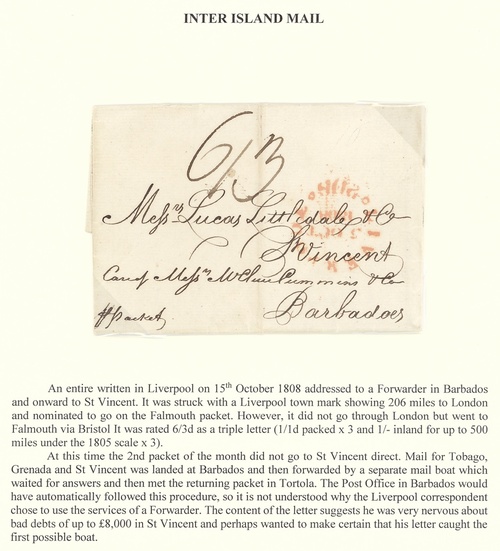 INTER ISLAND MAIL
6/3
Messrs Lucas Littledale & Co
St Vincent
Care of Messrs McClure Cummins & Co
Barbadoes
packet
An entire written in Liverpool on 15th October 1808 addressed to a Forwarder in Barbados
and onward to St Vincent. It was struck with a Liverpool town mark showing 206 miles to London
and nominated to go on the Falmouth packet. However, it did not go through London but went to
Falmouth via Bristol It was rated 6/3d as a triple letter (1/1d packed x 3 and 1/- inland for up to 500
miles under the 1805 scale x 3).
At this time the 2nd packet of the month did not go to St Vincent direct. Mail for Tobago,
Grenada and St Vincent was landed at Barbados and then forwarded by a separate mail boat which
waited for answers and then met the returning packet in Tortola. The Post Office in Barbados would
have automatically followed this procedure, so it is not understood why the Liverpool correspondent
chose to use the services of a Forwarder. The content of the letter suggests he was very nervous about
bad debts of up to £8,000 in St Vincent and perhaps wanted to make certain that his letter caught the
first possible boat.